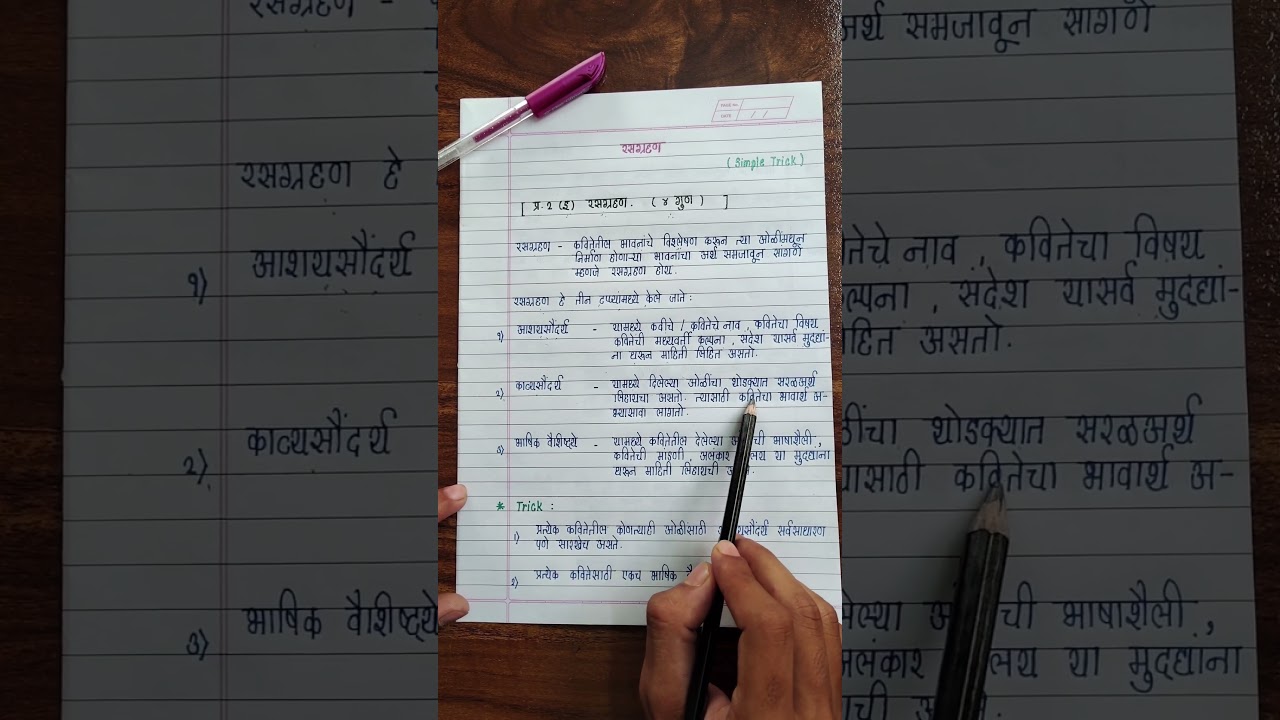 PAGE No.
DATE / /
रसग्रहण
( Simple Trick )
[ प्र. २ (इ) रसग्रहण. ( ४ गुण ) ]
रसग्रहण - कवितेतील भावनांचे विश्लेषण करून त्या ओळींमधून
निर्माण होणाऱ्या भावनांचा अर्थ समजावून सांगणे
म्हणजे रसग्रहण होय.
रसग्रहण हे तीन टप्प्यांमध्ये केले जाते :
१) आशयसौंदर्य - यामध्ये कवीचे / कवितेचे नाव, कवितेचा विषय
कवितेची मध्यवर्ती कल्पना, संदेश यासर्व मुद्द्यां-
ना धरून माहिती लिहित असतो.
२) काव्यसौंदर्य - यामध्ये दिलेल्या ओळींचा थोडक्यात सरळअर्थ
लिहायचा असतो. त्यासाठी कवितेचा भावार्थ अ-
भ्यासावा लागतो.
३) भाषिक वैशिष्ट्ये - यामध्ये कवितेतील देलेल्या ची भाषाशैली,
कवितेची मांडणी, अलंकार लय या मुद्द्यांना
धरून माहिती लिहायची
* Trick :
१) प्रत्येक कवितेतील कोणत्याही ओळीसाठी सर्वसाधारण
पणे सारखेच असते.
२) प्रत्येक कवितेसाठी एकच भाषिक